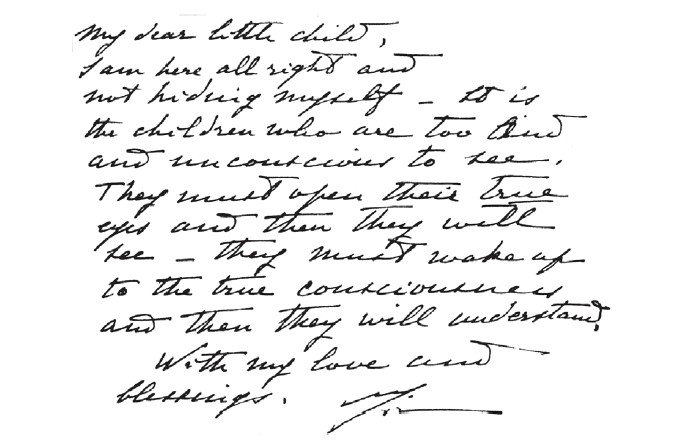 My dear little child,
I am here all right and
not hiding myself – It is
the children who are too blind
and unconscious to see.
They must open their true
eyes and then they will
see – they must wake up
to the true consciousness
and then they will understand.
With my love and
blessings.